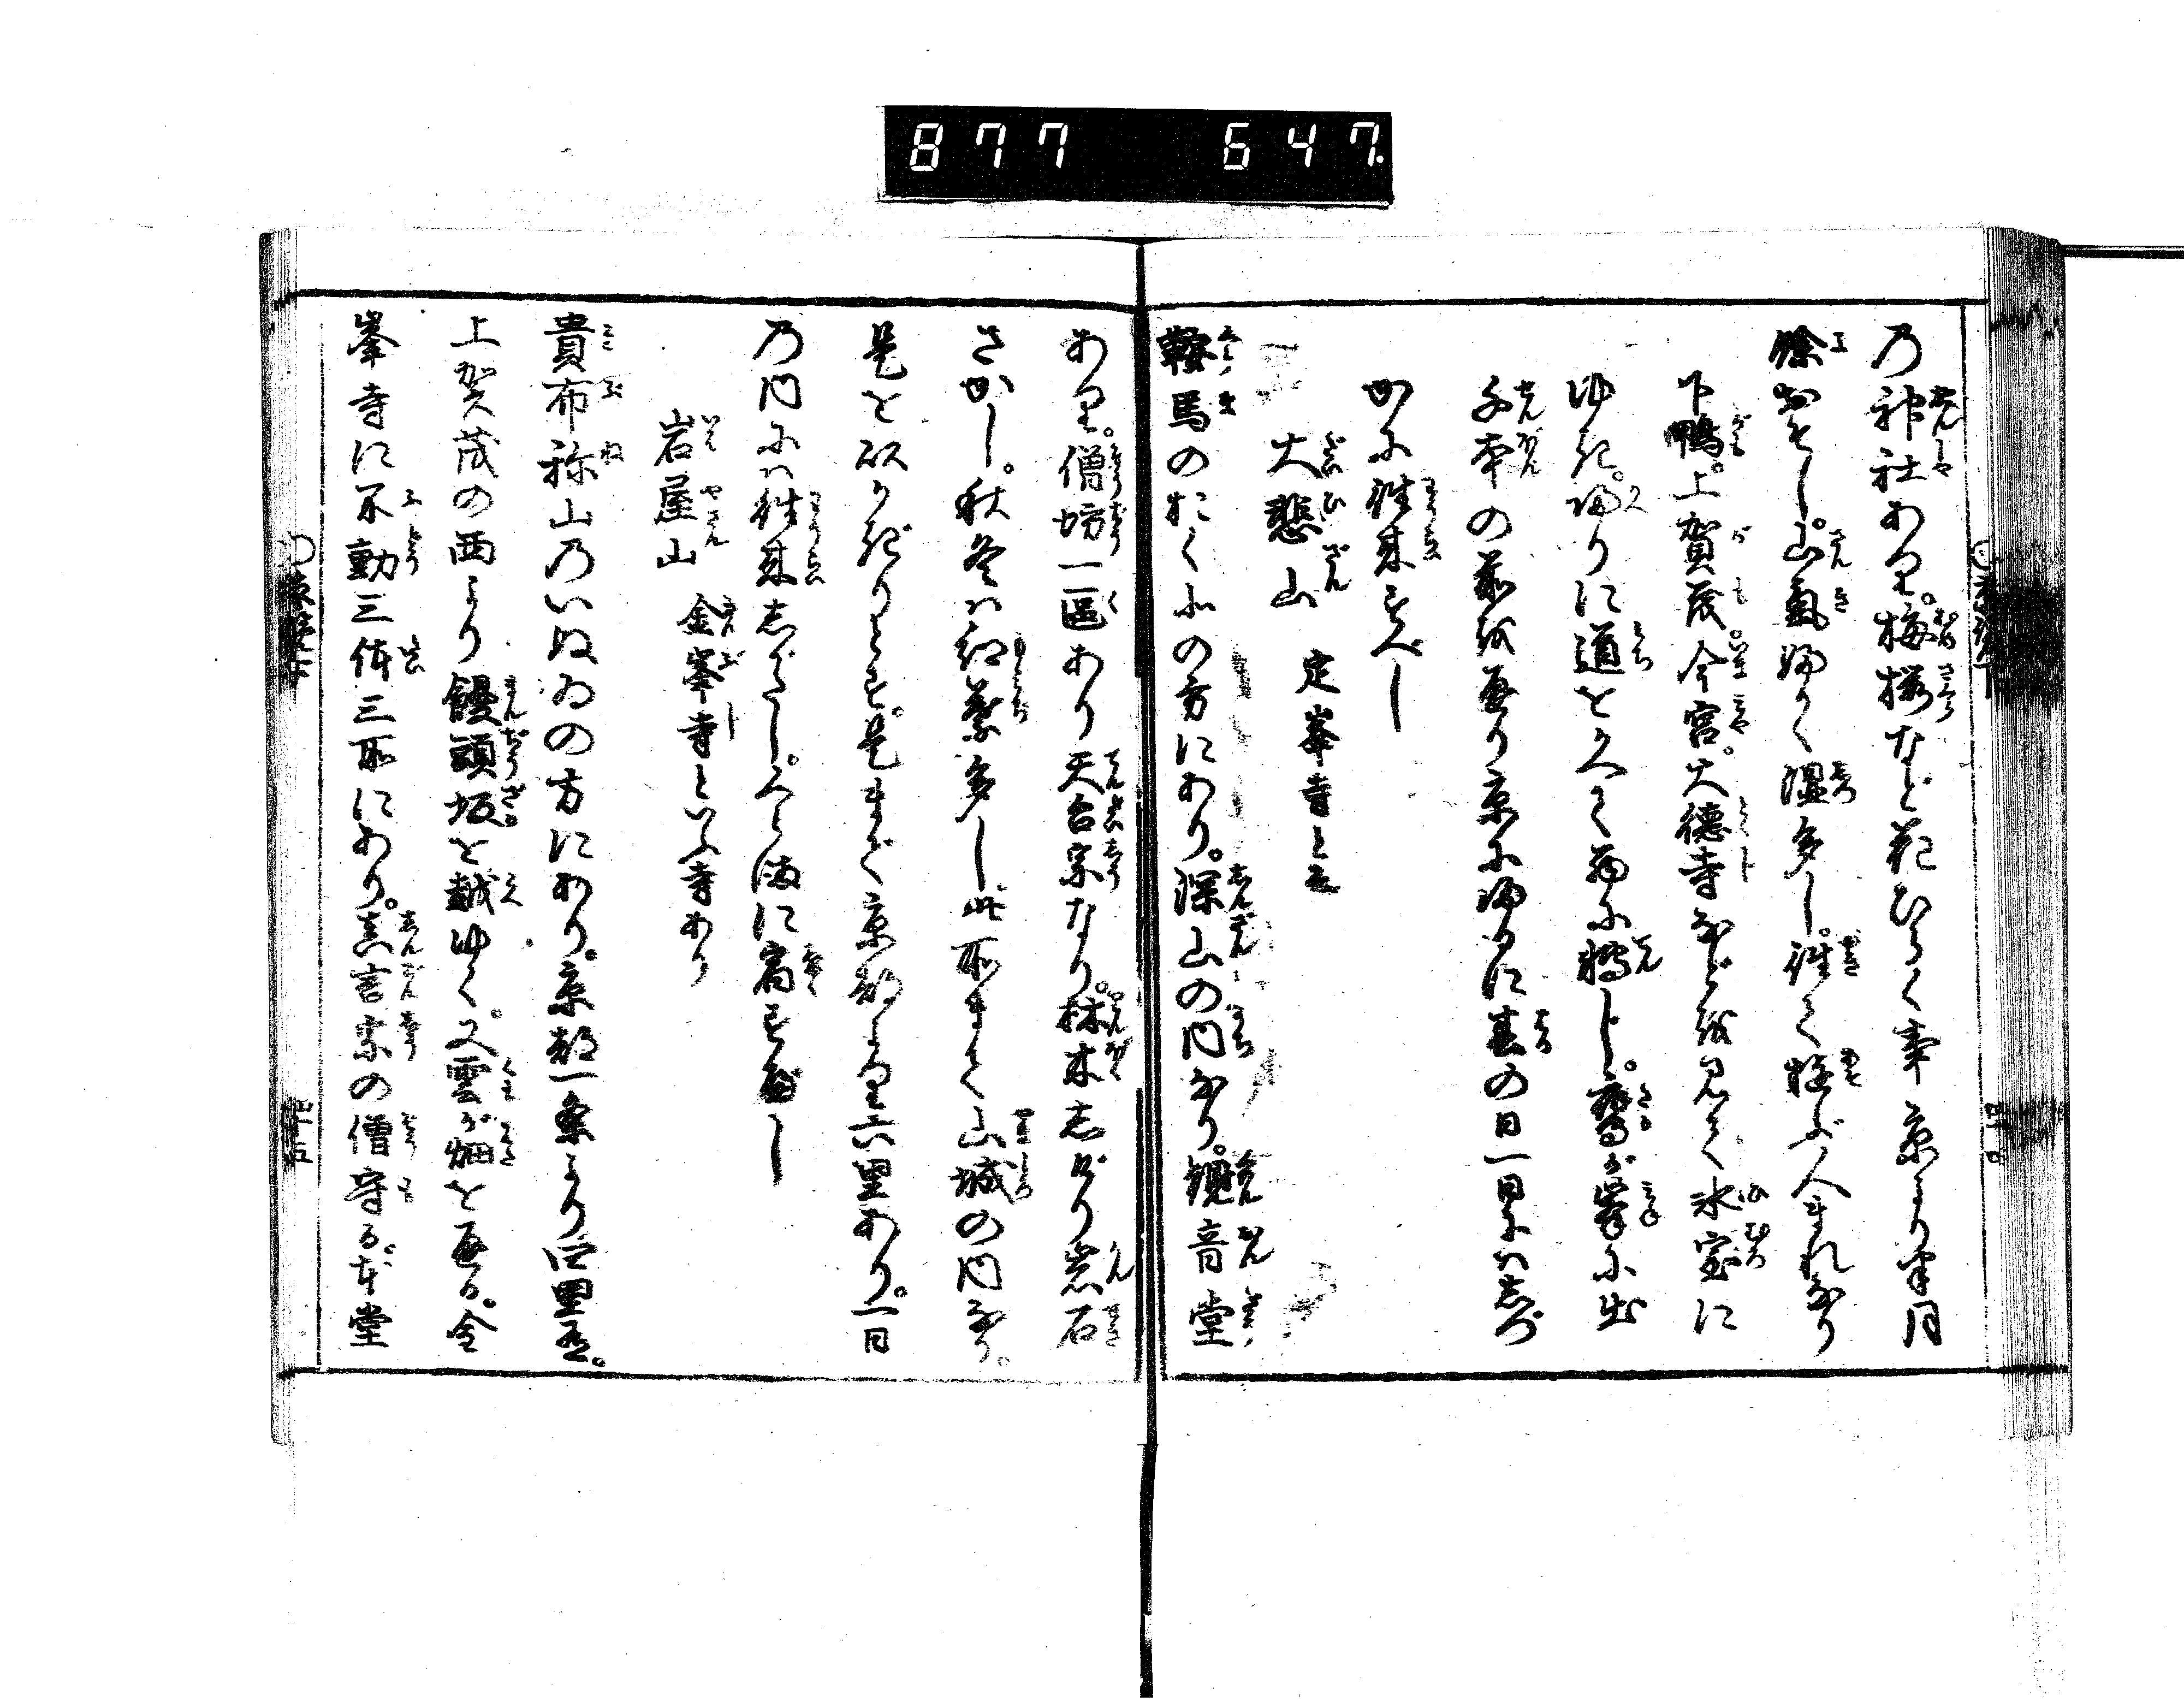 877 647.
乃神社あり。梅桜など花ひらく事京より半月
餘おそし。山氣ふかく湿多し。往て遊ぶ人まれなり
下鴨。上賀茂。今宮。大徳寺などを見て氷室に
ゆき。帰りに道をかへて西に轉し。鷹が峯に出
千本の前を通り京に帰るに春の日一日にはしづ
かに往来すべし
大悲山　定峯寺と云
鞍馬のおく北の方にあり。深山の内なり。観音堂
あり。僧坊一區あり天台宗なり。林木しげり岩石
さかし。秋冬は紅葉多し此所まて山城の内なり。
是を祇園ともす。是まで京都より六里あり。一日
乃内には往来しがたし。ふもとに宿すべし
岩屋山　金峯寺といふ寺あり
貴布祢山乃いぬゐの方にあり。京都一条より四里有。
上賀茂の西より饅頭坂を越ゆく。又雲が畑を通る。金
峯寺に不動三体三所にあり。真言宗の僧守る。本堂
四十五